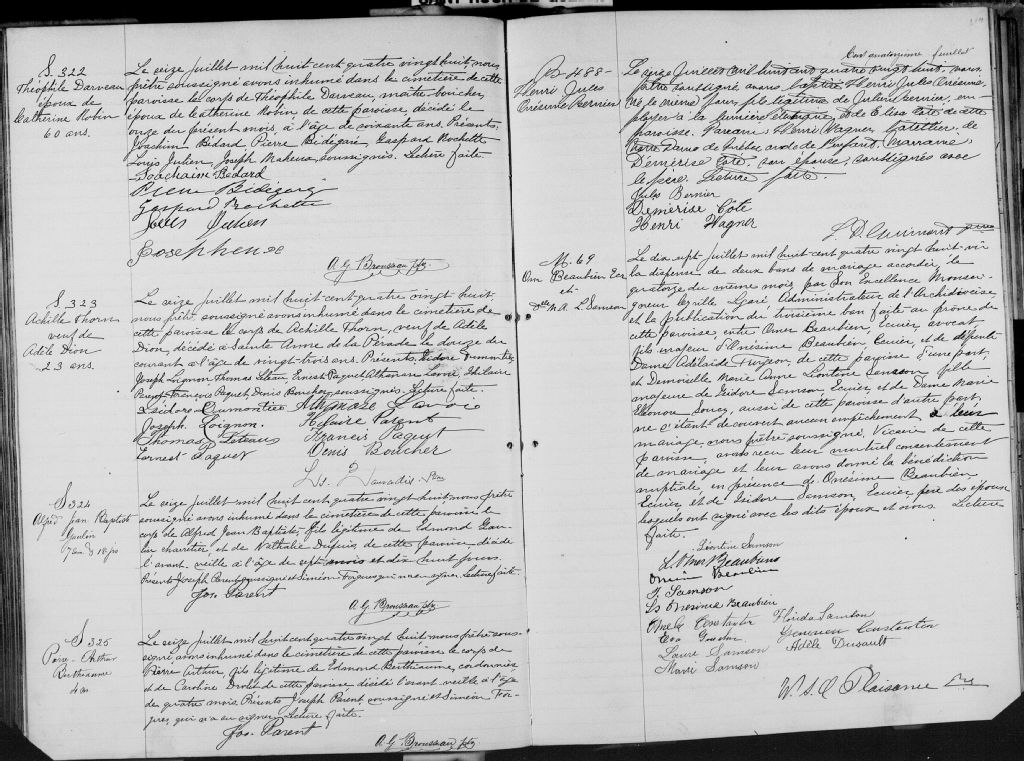 S. 322
Théophile Darveau
époux de
Catherine Robin
60 ans.
Le seize juillet mil huit cent quatre vingt huit, nous,
prêtre soussigné avons inhumé dans le cimetière de cette
paroisse le corps de Théophile Darveau, maître-boucher,
époux de Catherine Robin de cette paroisse, décédé le
onze du présent mois, à l'âge de soixante ans. Présents
Joachim Bédard Pierre Bidégaré Gaspard Rochette
Louis Julien Joseph soussignés. Lecture faite.
Joachaim Bédard
Pierre Bidégaré
Gaspard Rochette
Louis Julien
A. G. Brousseau ptre
S. 323
Achille Thorn
veuf de
Adèle Dion
23 ans.
Le seize juillet mil huit cent quatre vingt-huit
nous prêtre soussigné avons inhumé dans le cimetière de
cette paroisse le corps de Achille Thorn, veuf de Adèle
Dion, décédé à Sainte Anne de la Pérade le douze du
courant à l'âge de vingt-trois ans. Présents Isidore Dumontier
Joseph Loignon Thomas Ernest Paquet, Hilaire
Parent François Paquet, Denis Boucher soussignés. Lecture faite.
Isidore Dumontier
Joseph. Loignon.
Hilaire Parent
Thomas
Francis Paquet
Ernest Paquet
Denis Boucher
S 324
Alfred Jean Baptiste
Gaulin
Le seize juillet mil huit cent quatre vingt huit nous prêtre
soussigné avons inhumé dans le cimetière de cette paroisse le
corps de Alfred Jean Baptiste, fils légitime de Edmond Gau-
lin charretier, et de Nathalie Dupuis, de cette paroisse, décédé
l'avant veille à l'âge de sept mois et dix huit jours
Présents Joseph Parent soussigné et Siméon Fargues qui n'a su signer. Lecture faite.
Jos. Parent
A. G. Brousseau ptre
S 325
Pierre Arthur
Berthiaume
4 m
Le seize Juillet mil huit cent quatre vingt huit nous prêtre sous-
signé, avons inhumé dans le cimetière de cette paroisse le corps de
Pierre Arthur, fils légitime de Edmond Berthiaume, cordonnier
et de Caroline Drolet de cette paroisse décédé l'avant veille à l'âge
de quatre mois. Présents Joseph Parent soussigné et Siméon Far-
gues, qui n'a su signer. Lecture faite.
Jos. Parent
A. G. Brousseau ptre
Cent quatorzième feuillet
B-488-
Henri Jules
Onésime Bernier
Le seize Juillet mil huit cent quatre vingt huit, nous
prêtre soussigné avons baptisé Henri Jules Onésime,
né le même jour, fils légitime de Jules Bernier, em-
ployé à la lumière électrique, et de Elisa Côté de cette
paroisse. Parrain Henri Wagner, batelier, de
Notre Dame de Québec, oncle de l'enfant. Marraine
Démérise Côté, son épouse, soussignés avec
le père. Lecture faite.
Jules Bernier
Démérise Côté
Henri Wagner
M. 69
Omer Beaubien Ecr
et
Dlle M. A. L. Samson
Le dix sept juillet mil huit cent quatre vingt huit vu
la dispense de deux bans de mariage accordée le
quatorze du même mois par Son Excellence Monsei-
gneur Cyrille Légaré Administrateur de l'Archidiocèse
et la publication du troisième ban faite au prône de
cette paroisse entre Omer Beaubien, Ecuier, avocat
fils majeur d'Onésime Beaubien, Ecuier, et de défunte
Dame Adélaïde Turgeon de cette paroisse d'une part,
et Demoiselle Marie Anne Léontine Samson fille
majeure de Isidore Samson Ecuier et de Dame Marie
Eléonore Soucy, aussi de cette paroisse d'autre part,
ne s'étant découvert aucun empêchement à leur
mariage, nous prêtre soussigné, Vicaire de cette
paroisse, avons reçu leur mutuel consentement
de mariage et leur avons donné la bénédiction
nuptiale en présence de Onésime Beaubien
Ecuier, et de Isidore Samson, Ecuier, père des époux
lesquels ont signé avec les dits époux et nous. Lecture
faite.
Léontine Samson
L. Omer Beaubien
I. Samson
Ls Onésime Beaubien
Constantin
Florida Samson
Geneviève Constantin
Laure Samson
Adèle Dusault
Marie Samson
Plaisance Ptre